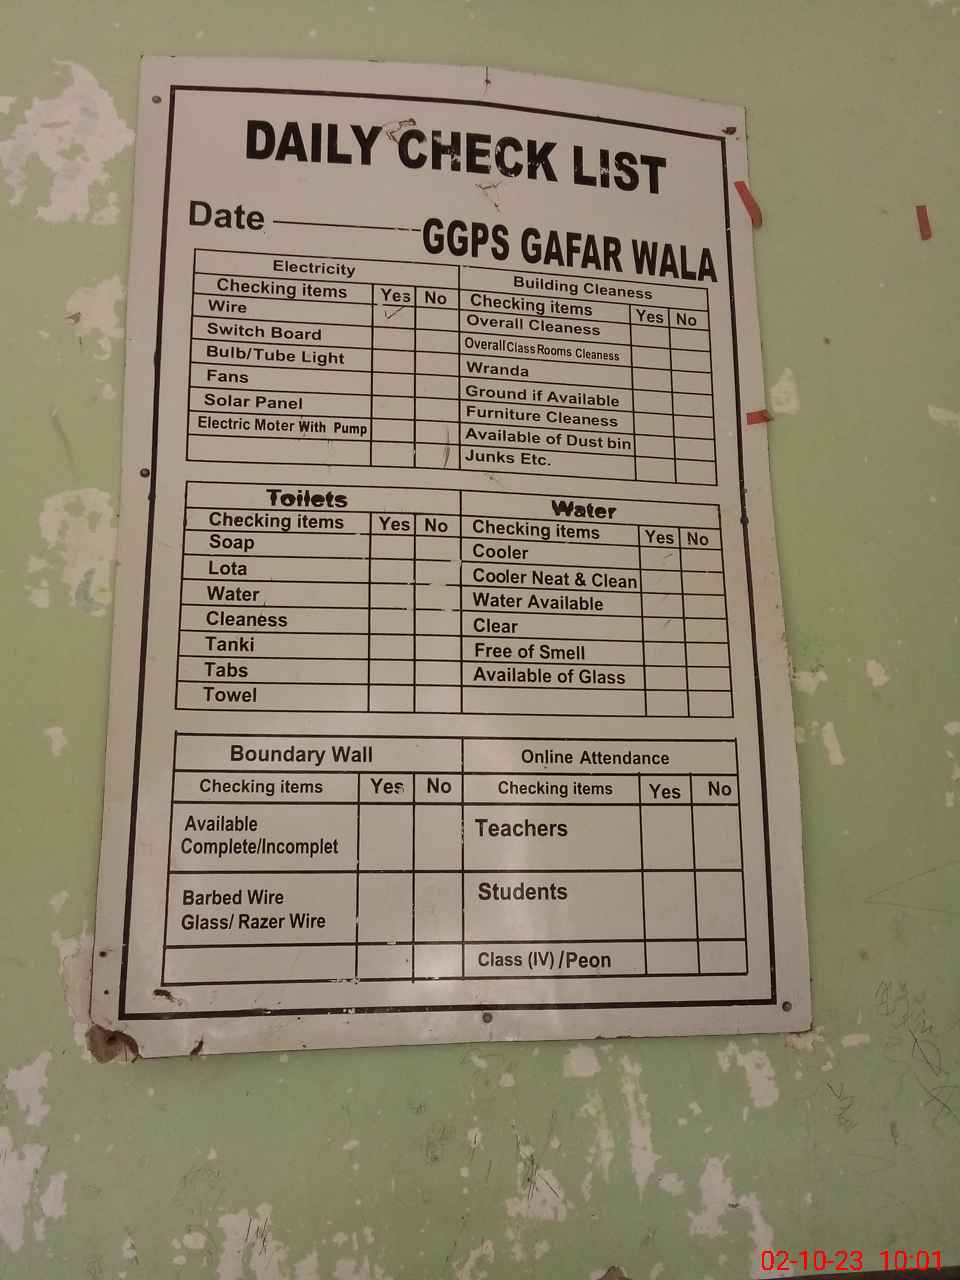 DAILY CHECK LIST
Date
GGPS GAFAR WALA
Electricity
Checking items Yes No
Wire
Switch Board
Bulb/Tube Light
Fans
Solar Panel
Electric Moter With Pump
Building Cleaness
Checking items Yes No
Overall Cleaness
Overall Class Rooms Cleaness
Wranda
Ground if Available
Furniture Cleaness
Available of Dust bin
Junks Etc.
Toilets
Checking items Yes No
Soap
Lota
Water
Cleaness
Tanki
Tabs
Towel
Water
Checking items Yes No
Cooler
Cooler Neat & Clean
Water Available
Clear
Free of Smell
Available of Glass
Boundary Wall
Checking items Yes No
Available
Complete/Incomplet
Barbed Wire
Glass/ Razer Wire
Online Attendance
Checking items Yes No
Teachers
Students
Class (IV) /Peon
02-10-23 10:01